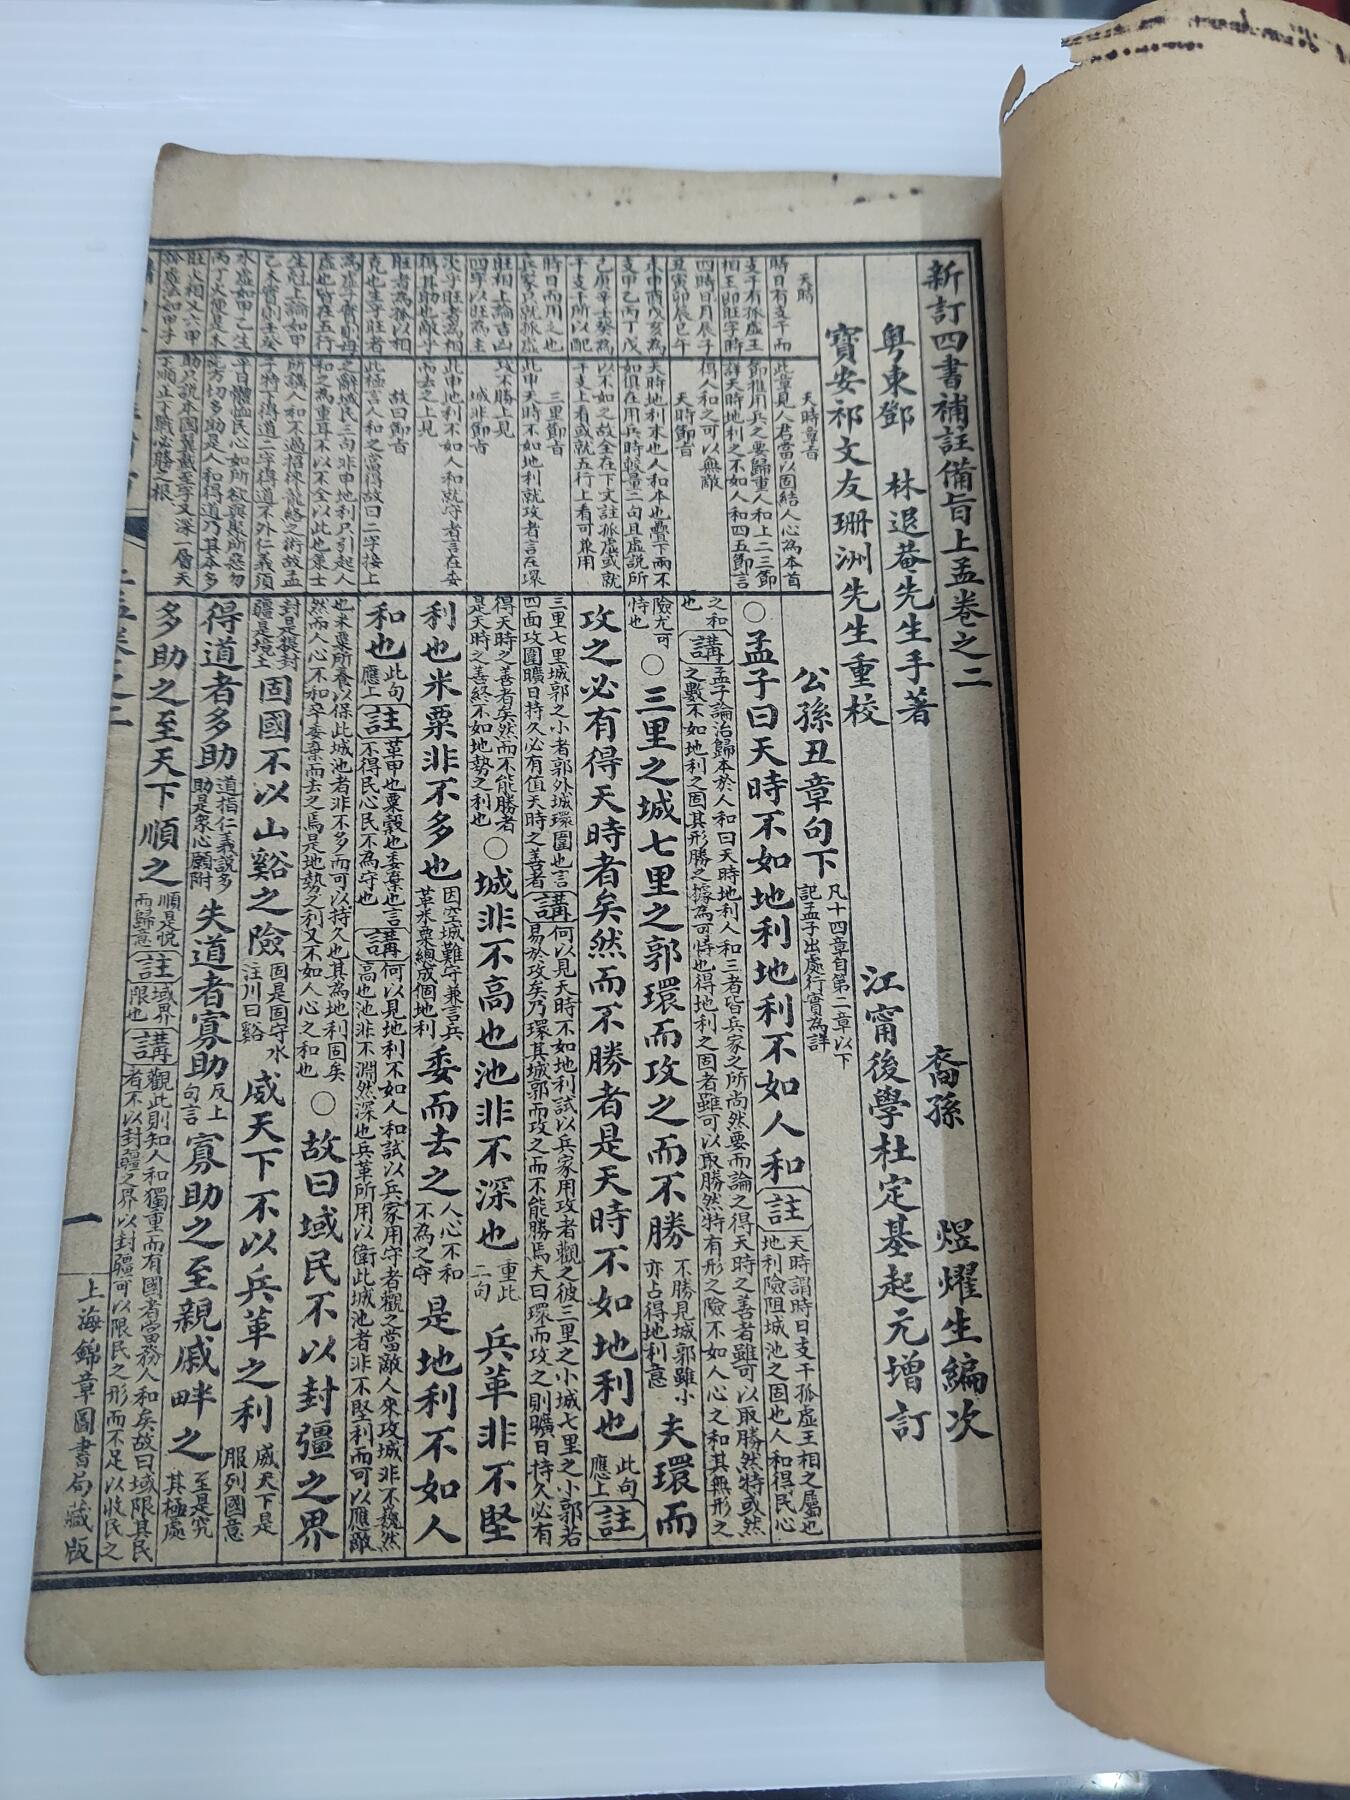 新訂四書補註備旨上孟卷之二
粵東鄧 林退菴先生手著 裔孫 煜燿生編次
寶安祁文友珊洲先生重校 江甯後學杜定基起元增訂
公孫丑章句下 凡十四章自第二章以下記孟子出處行實為詳
○孟子曰天時不如地利地利不如人和 註 天時謂時日支干孤虛王相之屬也地利險阻城池之固也人和得民心
之和也 講 孟子論治歸本於人和曰天時地利人和三者皆兵家之所尚然要而論之得天時之善者雖可以取勝然特或然之數不如地利之固其形勝之據為可恃也得地利之固者雖可以取勝然特有形之險不如人心之和其無形之
險尤可恃也 ○三里之城七里之郭環而攻之而不勝 不勝見城郭雖小亦占得地利意 夫環而
攻之必有得天時者矣然而不勝者是天時不如地利也 此句應上 註
三里七里城郭之小者郭外城環圍也言四面攻圍曠日持久必有值天時之善者 講 何以見天時不如地利試以兵家用攻者觀之彼三里之小城七里之小郭若易於攻矣乃環其城郭而攻之而不能勝焉夫曰環而攻之則曠日持久必有
得天時之善者矣然而不能勝者是天時之善終不如地勢之利也 ○城非不高也池非不深也 重此二句 兵革非不堅
利也米粟非不多也 因空城難守兼言兵革米粟總成個地利 委而去之 人心不和不為之守 是地利不如人
和也 此句應上 註 革甲也粟穀也委棄也言不得民心民不為守也 講 何以見地利不如人和試以兵家用守者觀之當敵人來攻城非不巍然高也池非不淵然深也兵革所用以衛此城池者非不堅利而可以應敵
也米粟所養以保此城池者非不多而可以持久也其為地利固矣然而人心不和卒委棄而去之焉是地勢之利又不如人心之和也 ○故曰域民不以封疆之界
封是提封疆是境土 固國不以山谿之險 固是固守水注川曰谿 威天下不以兵革之利 威天下是服列國意
得道者多助 道指仁義說多助是衆心願附 失道者寡助 反上句言 寡助之至親戚畔之 至是究其極處
多助之至天下順之 順是悅而歸意 註 域界限也 講 觀此則知人和獨重而有國者當務人和矣故曰域限其民者不以封疆之界以封疆可以限民之形而不足以收民之
天時
時日有支干而支干有孤虛王相王即旺字時四時日月辰子丑寅卯辰巳午未申酉戌亥為支甲乙丙丁戊己庚辛壬癸為干支干所以配時日而用之也兵家只就孤虛旺相上論吉凶
天時章旨
此章見人君當以固結人心為本首節推用兵之要歸重人和上二三節詳天時地利之不如人和四五節言得人和之可以無敵
天時節旨
天時地利末也人和本也疊下兩不如俱在用兵時較量二句且虛說所以不如之故全在下文註孤虛或就干支上看或就五行上看可兼用
三里節旨
此申天時不如地利就攻者言在環攻不勝上見
城非節旨
此申地利不如人和就守者言在委而去之上見
故曰節旨
此極言人和之當得故曰二字接上之辭域民三句非申地利只引起人和之為重耳
一
上海錦章圖書局藏版